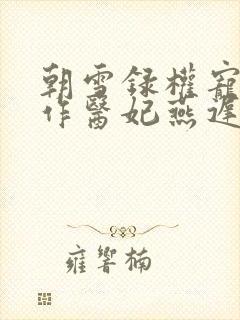 朝雪録權寵
作醫妃燕遲
雍響楠